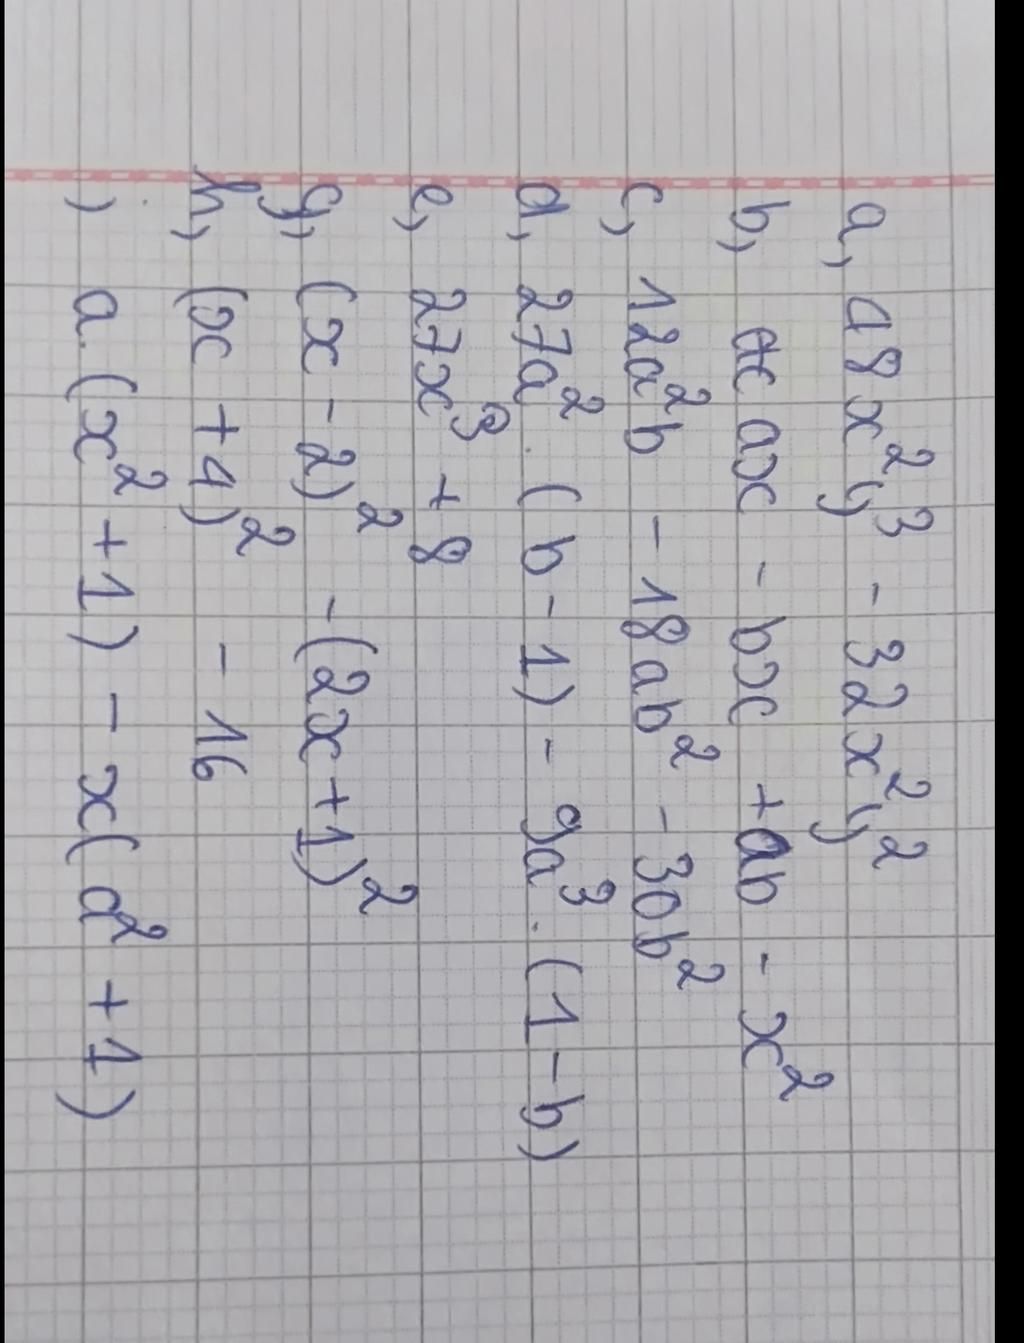 a, 18x²y³ - 32x²y²
b, ax - bx + ab - x²
c, 12a²b - 18ab² - 30b²
d, 27a².(b-1) - 9a³.(1-b)
e, 27x³ + 8
g, (x-2)² - (2x+1)²
h, (x+4)² - 16
) a.(x²+1) - x(a²+1)